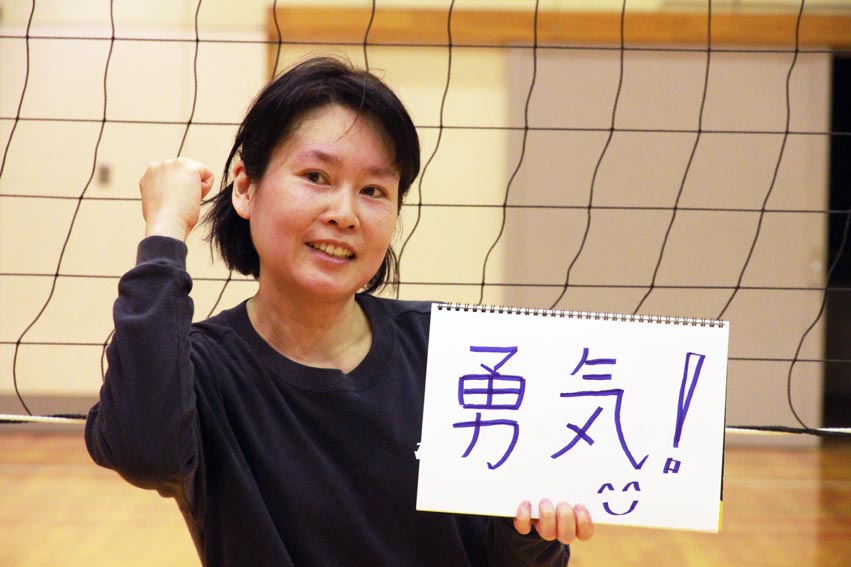 勇気!